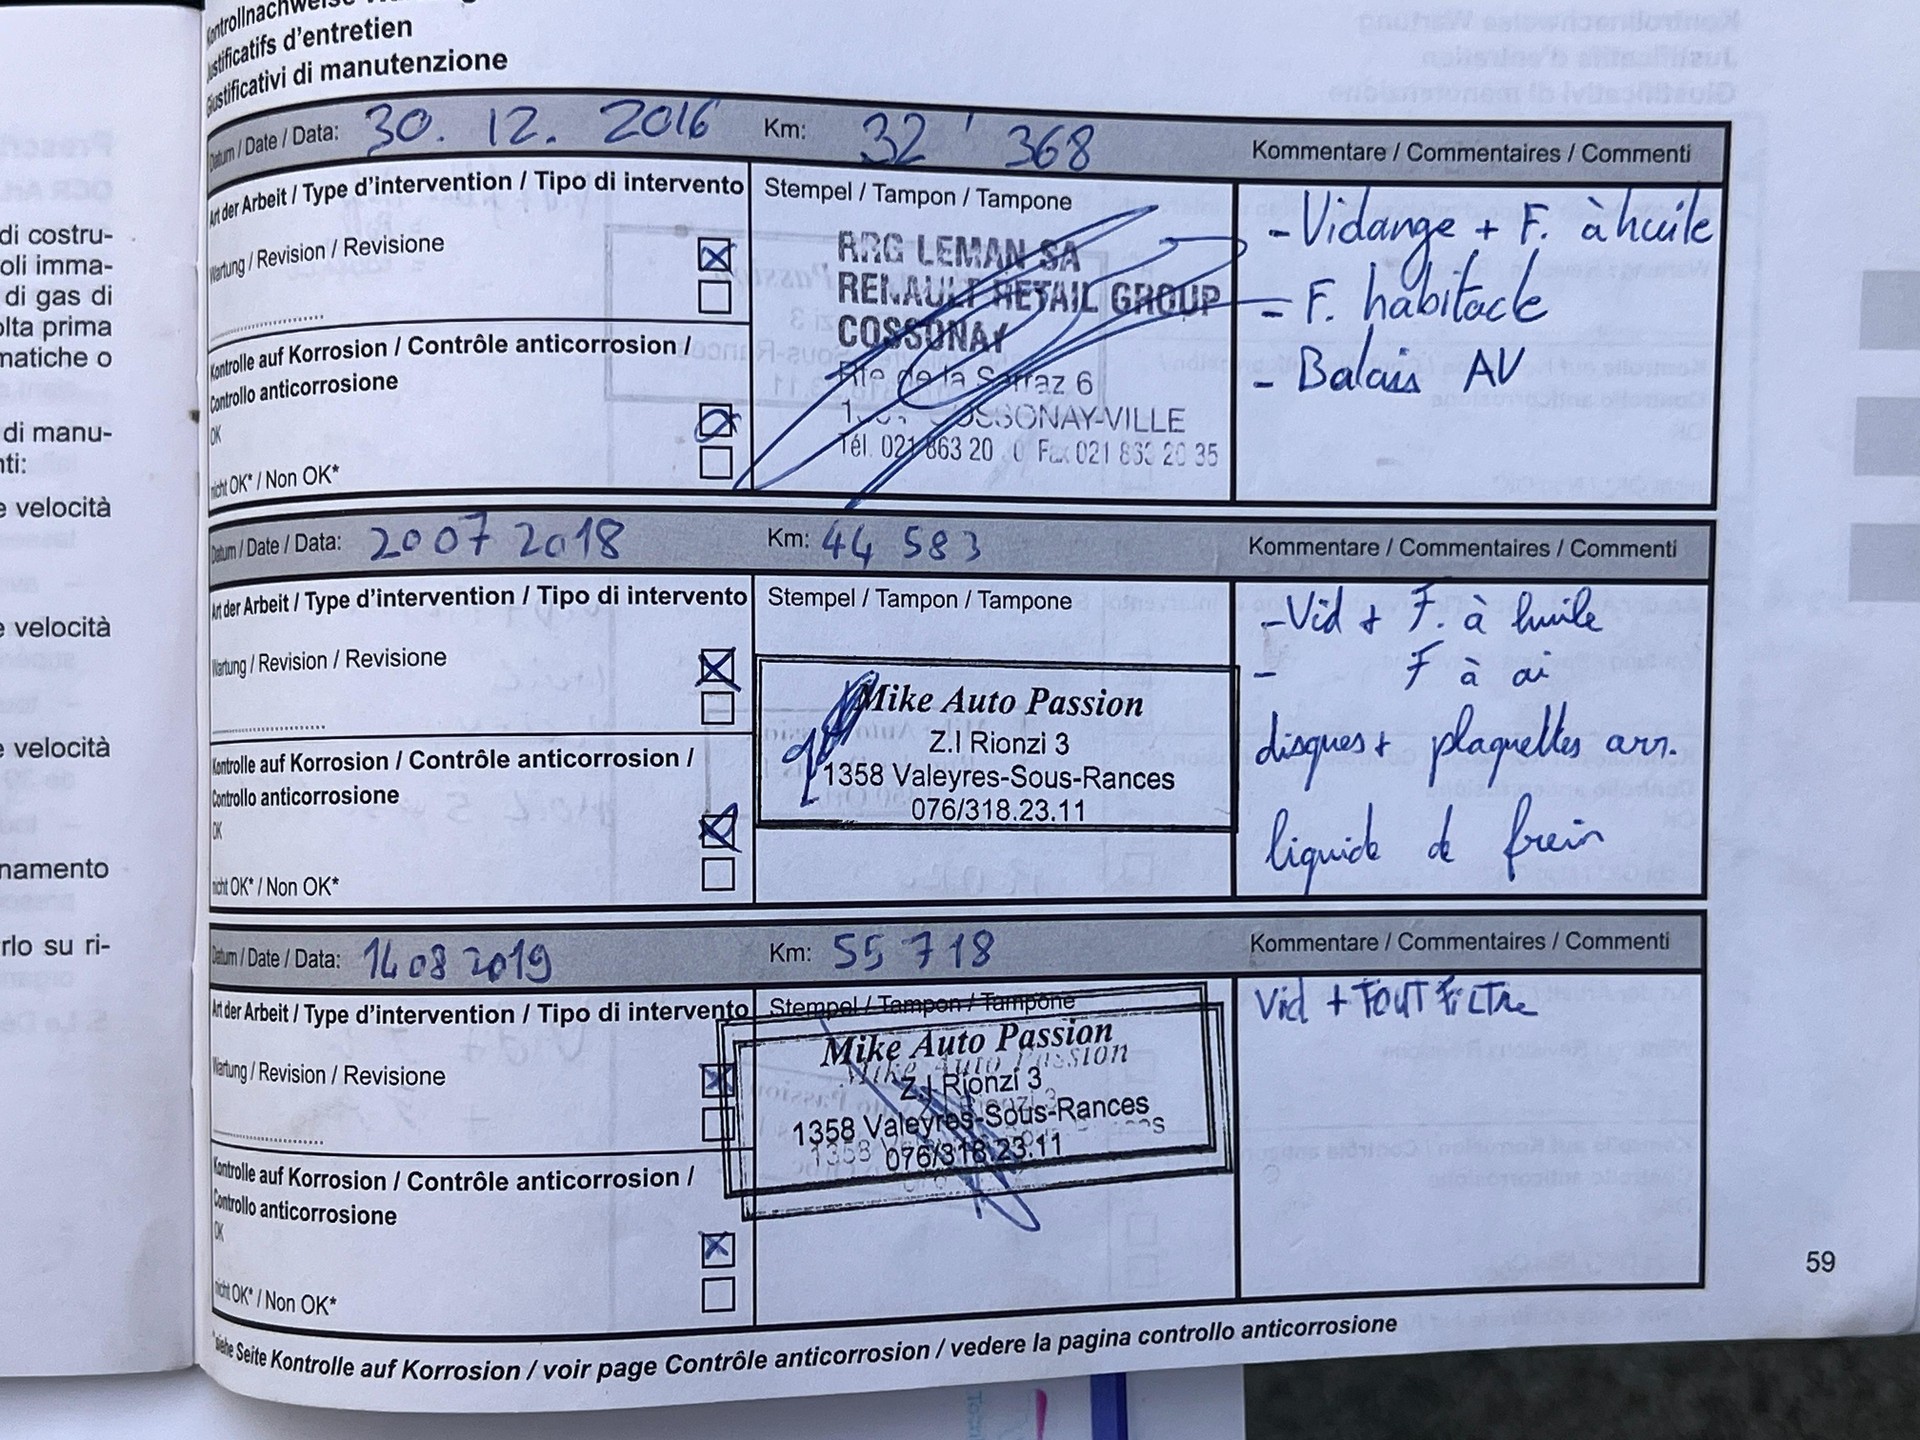 Kontrollnachweise
Justificatifs d'entretien
Giustificativi di manutenzione
Datum / Date / Data: 30. 12. 2016 Km: 32'368 Kommentare / Commentaires / Commenti
Art der Arbeit / Type d'intervention / Tipo di intervento
Stempel / Tampon / Tampone
Wartung / Revision / Revisione
RRG LEMAN SA
RENAULT RETAIL GROUP
COSSONAY
Rte de la Sarraz 6
COSSONAY-VILLE
Tél. 021 863 20 0 Fax 021 863 20 35
- Vidange + F. à huile
- F. habitacle
- Balais AV
Kontrolle auf Korrosion / Contrôle anticorrosion /
Controllo anticorrosione
OK
nicht OK* / Non OK*
Datum / Date / Data: 20 07 2018 Km: 44 583 Kommentare / Commentaires / Commenti
Art der Arbeit / Type d'intervention / Tipo di intervento
Stempel / Tampon / Tampone
Wartung / Revision / Revisione
Mike Auto Passion
Z.I Rionzi 3
1358 Valeyres-Sous-Rances
076/318.23.11
- Vid + F. à huile
- F à ai
disques + plaquettes arr.
liquide de frein
Kontrolle auf Korrosion / Contrôle anticorrosion /
Controllo anticorrosione
OK
nicht OK* / Non OK*
Datum / Date / Data: 14 08 2019 Km: 55 718 Kommentare / Commentaires / Commenti
Art der Arbeit / Type d'intervention / Tipo di intervento
Stempel / Tampon / Tampone
Wartung / Revision / Revisione
Mike Auto Passion
Z.I Rionzi 3
1358 Valeyres-Sous-Rances
076/318.23.11
Vid + TOUT FILTRE
Kontrolle auf Korrosion / Contrôle anticorrosion /
Controllo anticorrosione
OK
nicht OK* / Non OK*
*siehe Seite Kontrolle auf Korrosion / voir page Contrôle anticorrosion / vedere la pagina controllo anticorrosione
59
di costru-
oli imma-
di gas di
olta prima
matiche o
di manu-
nti:
e velocità
e velocità
e velocità
namento
rlo su ri-